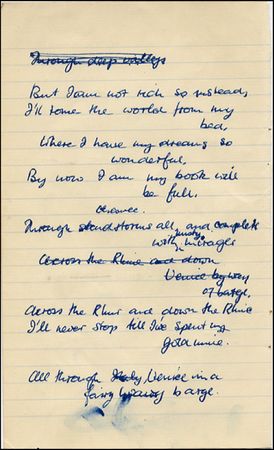 Through deep valleys
But I am not rich so instead,
I'll rome the world from my
bed,
Where I have my dreams so
wonderful,
By now I am my book will
be full.
Through sandstorms all and complete
with mirages
Across the Rhine and down
Venice by way
of barge,
Across the Rhur and down the Rhine
I'll never stop till I've spent my
gold mine.
All through Italy Venice in a
fairy barge.